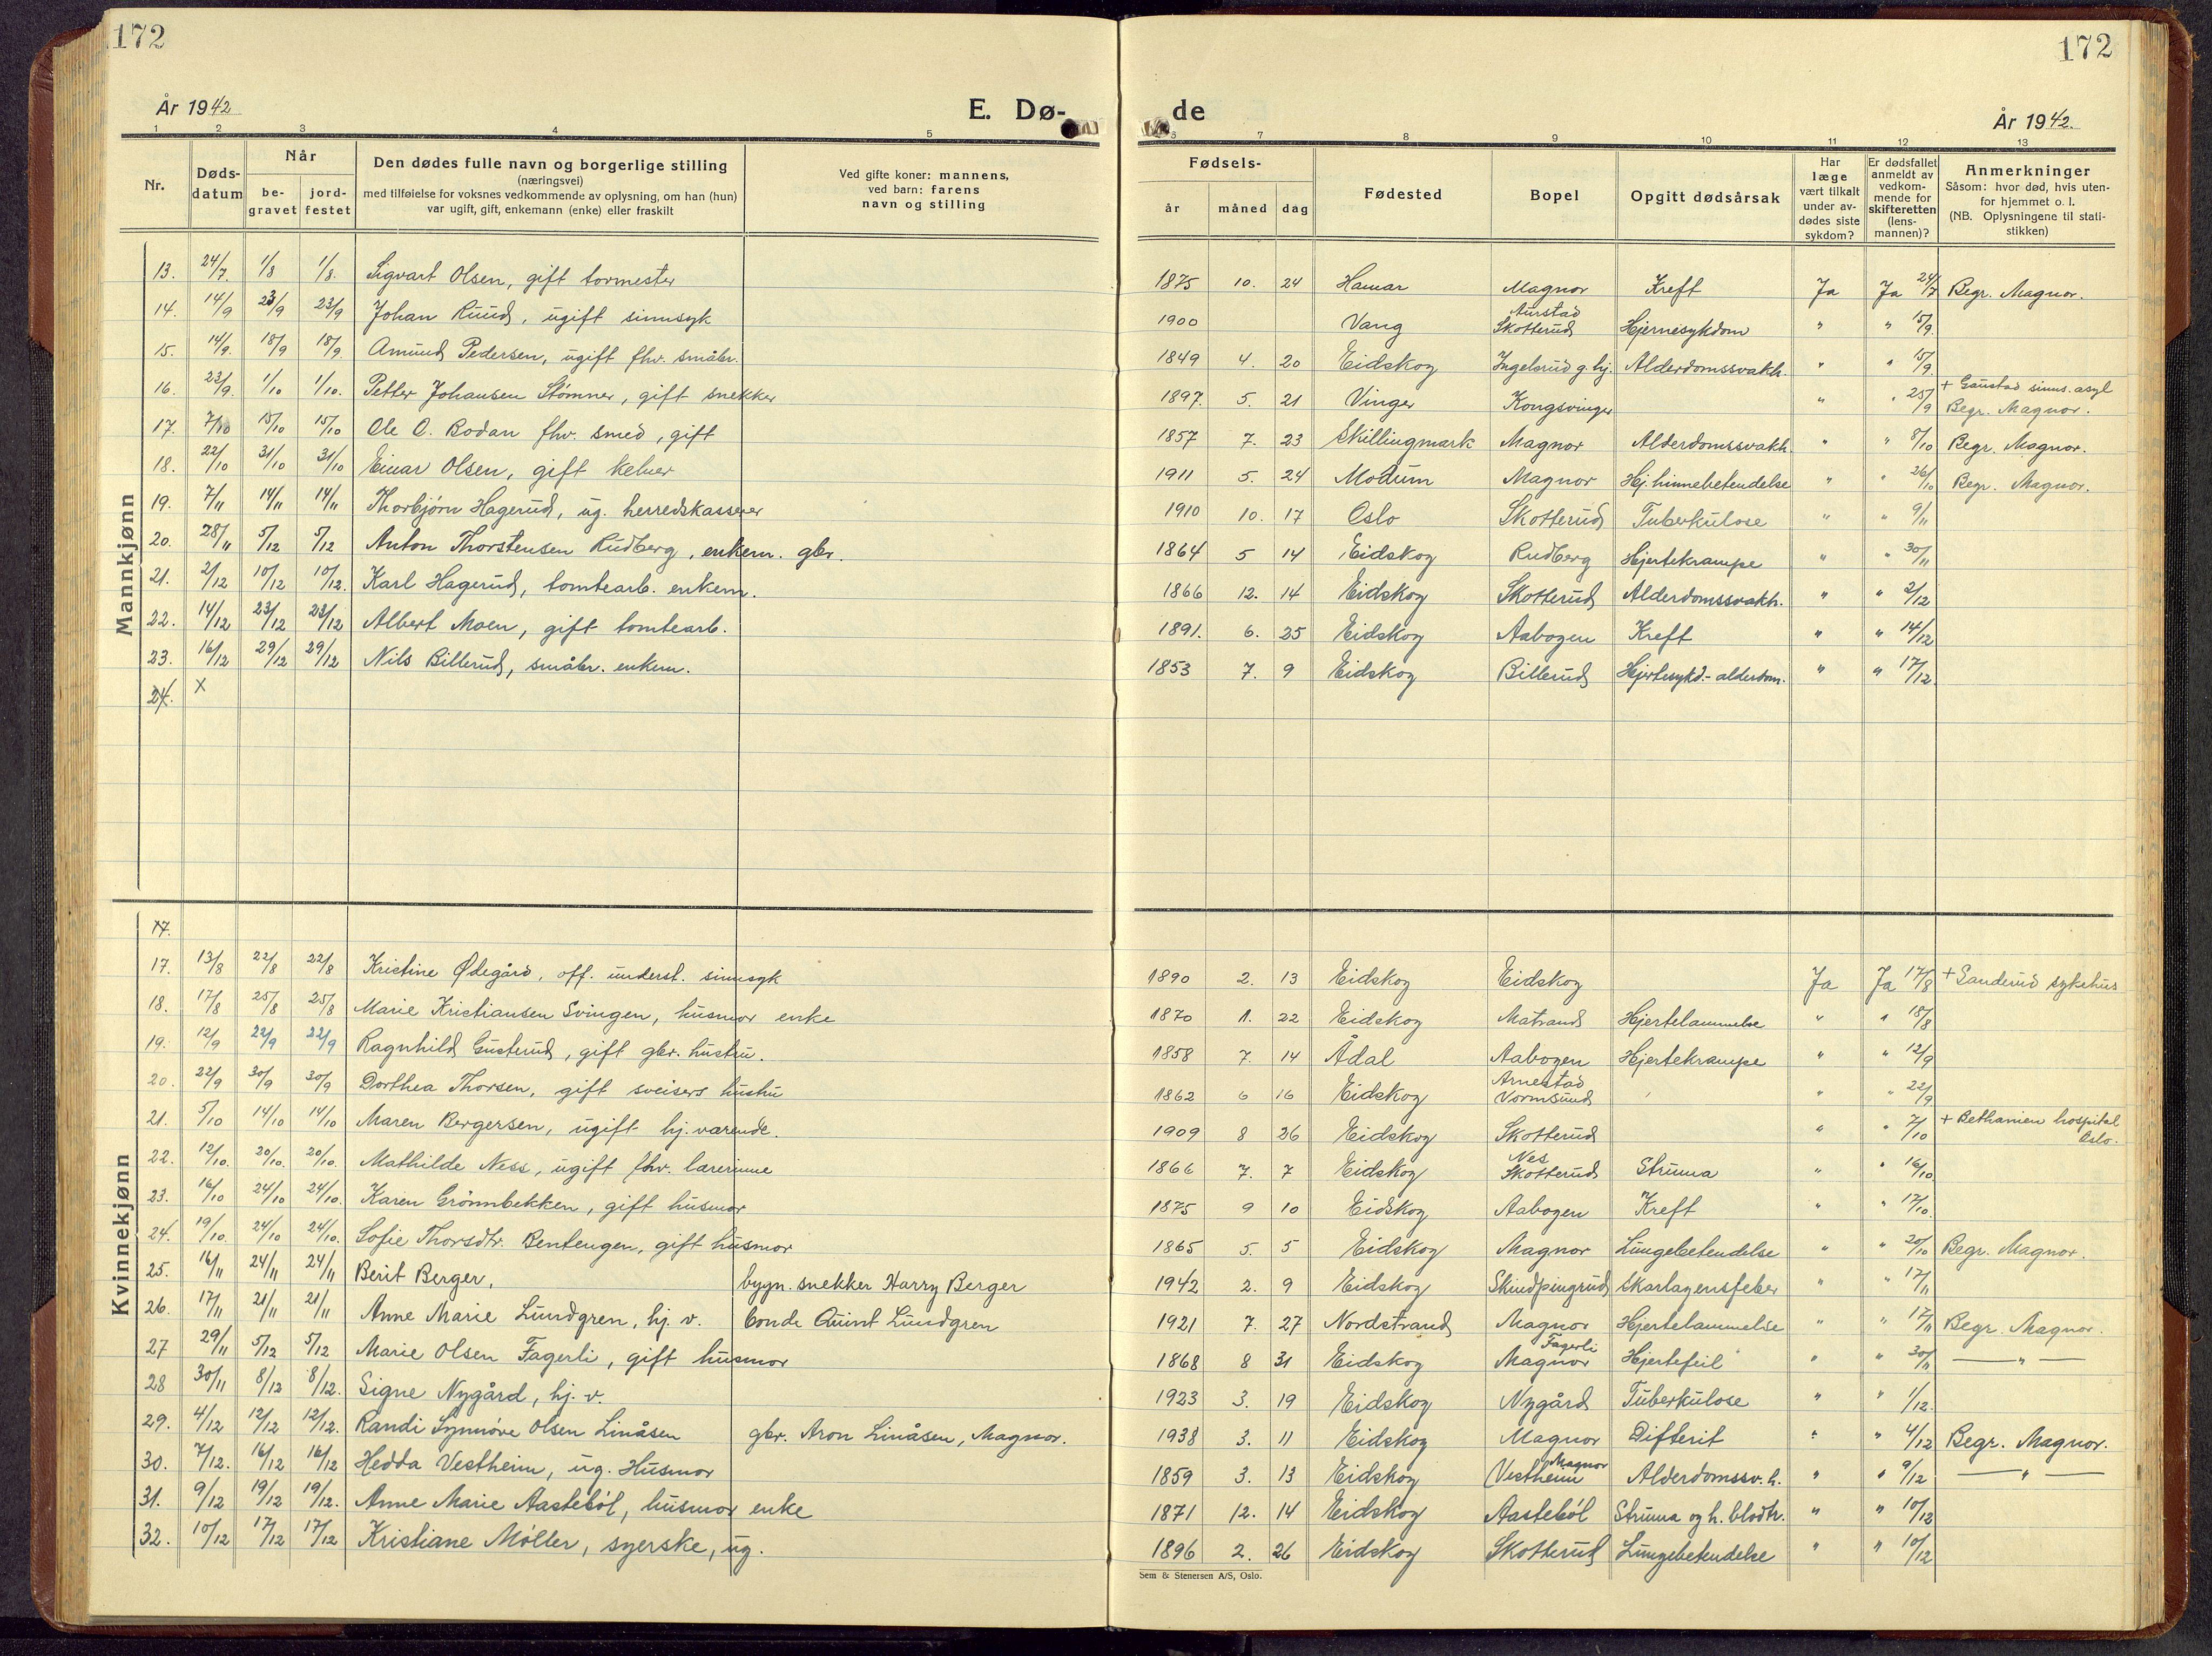 172
172
År 1942
E. Dø-
de
År 1942.
1 2 3 4 5
6 7 8 9 10 11 12 13
Nr.
Døds-
datum
Når
be-
gravet
jord-
festet
Den dødes fulle navn og borgerlige stilling
(næringsvei)
med tilføielse for voksnes vedkommende av oplysning, om han (hun)
var ugift, gift, enkemann (enke) eller fraskilt
Ved gifte koner: mannens,
ved barn: farens
navn og stilling
Fødsels-
år måned dag
Fødested
Bopel
Opgitt dødsårsak
Har
læge
vært tilkalt
under av-
dødes siste
sykdom?
Er dødsfallet
anmeldt av
vedkom-
mende for
skifteretten
(lens-
mannen)?
Anmerkninger
Såsom: hvor død, hvis uten-
for hjemmet o. l.
(NB. Oplysningene til stati-
stikken)
Mannkjønn
13. 24/7 1/8 1/8. Sigvart Olsen, gift tormester 1875 10. 24 Hamar Magnor Kreft Ja Ja 24/7 Begr. Magnor.
14. 14/9 23/9 23/9 Johan Ruud, ugift sinnsyk 1900 Vang Aurstad Skotterud Hjernesykdom " " 15/9.
15. 14/9. 18/9 18/9. Amund Pedersen, ugift fhv. småbr. 1849 4. 20 Eidskog Ingelsrud g. hj. Alderdomssvakh. " " 15/9.
16. 23/9. 1/10 1/10. Petter Johansen Stømner, gift snekker 1897. 5. 21 Vinger Kongsvinger " " 25/9 + Gaustad sinns. asyl Begr. Magnor.
17. 7/10 15/10 15/10 Ole O. Bodan fhv. smed, gift 1857 7. 23 Skillingmark Magnor Alderdomssvakh. " " 8/10 Begr. Magnor.
18. 22/10 31/10 31/10 Einar Olsen, gift kelner 1911 5. 24 Modum Magnor Hj.hinnebetendelse " " 26/10 Begr. Magnor.
19. 7/11 14/11 14/11 Thorbjørn Hagerud, ug. herredskasserer 1910 10. 17 Oslo Skotterud Tuberkulose " " 9/11
20. 28/11 5/12 5/12 Anton Thorstensen Rudberg, enkem. gbr. 1864 5 14 Eidskog Rudberg Hjertekrampe " " 30/11
21. 2/12 10/12 10/12. Karl Hagerud, tomtearb. enkem. 1866 12. 14 Eidskog Skotterud Alderdomssvakh. " " 2/12
22. 14/12 23/12 23/12 Albert Moen, gift tomtearb. 1891. 6. 25 Eidskog Aabogen Kreft " " 14/12
23. 16/12 29/12 29/12 Nils Billerud, småbr. enkem. 1853 7. 9 Eidskog Billerud Hjertesykd.- alderdom. " " 17/12.
24. x
Kvinnekjønn
17.
17. 13/8 22/8 22/8 Kristine Ødegård, off. underst. sinnsyk 1890 2. 13 Eidskog Eidskog Ja Ja 17/8 + Sanderud sykehus
18. 17/8 25/8 25/8 Marie Kristiansen Svingen, husmor enke 1870 1. 22 Eidskog Matrand Hjertelammelse " " 18/8
19. 12/9 22/9 22/9 Ragnhild Gusterud, gift gbr. hustru. 1858 7. 14 Ådal Aabogen Hjertekrampe " " 12/9
20. 22/9 30/9 30/9 Dorthea Thorsen, gift sveisers hustru 1862 6 16 Eidskog Arnestad Vormsund " " 22/9
21. 5/10 14/10 14/10 Maren Bergersen, ugift hj.værende. 1909 8 26 Eidskog Skotterud " " 7/10 + Bethanien hospital Oslo.
22. 12/10. 20/10. 20/10. Mathilde Ness, ugift fhv. lærerinne 1866 7. 7 Eidskog Nes Skotterud Struma " " 16/10
23. 16/10 24/10 24/10. Karen Grönnbekken, gift husmor 1875 9 10 Eidskog Aabogen Kreft " " 17/10.
24. 19/10. 24/10 24/10. Sofie Thorsdtr. Bentengen, gift husmor 1865 5. 5 Eidskog Magnor Lungebetendelse " " 20/10 Begr. Magnor.
25. 16/11 24/11 24/11 Berit Berger, bygn. snekker Harry Berger 1942 2. 9 Eidskog Skindpungrud Skarlagensfeber " " 17/11
26. 17/11 21/11 21/11 Anne Marie Lundgren, hj. v. bonde Quint Lundgren 1921 7. 27 Nordstrand Magnor Hjertelammelse " " 17/11 Begr. Magnor.
27 29/11 5/12 5/12 Marie Olsen Fagerli, gift husmor 1868 8 31 Eidskog Fagerli Magnor Hjertefeil " " 30/11 — " —
28 30/11 8/12 8/12. Signe Nygård, hj. v. 1923 3. 19 Eidskog Nygård Tuberkulose " " 1/12.
29. 4/12 12/12 12/12. Randi Synnöve Olsen Linåsen gbr. Aron Linåsen, Magnor. 1938 3. 11 Eidskog Magnor Difterit " " 4/12 Begr. Magnor.
30. 7/12. 16/12 16/12 Hedda Vestheim, ug. Husmor 1859 3. 13 Eidskog Magnor Vestheim Alderdomssv.h. " " 9/12 — " —
31. 9/12 19/12 19/12. Anne Marie Aasteböl, husmor enke 1871 12. 14 Eidskog Aasteböl Struma og h. blodtr. " " 10/12
32. 10/12 17/12 17/12 Kristiane Möller, syerske, ug. 1896 2. 26 Eidskog Skotterud Lungebetendelse " " 10/12
Sem & Stenersen A/S, Oslo.